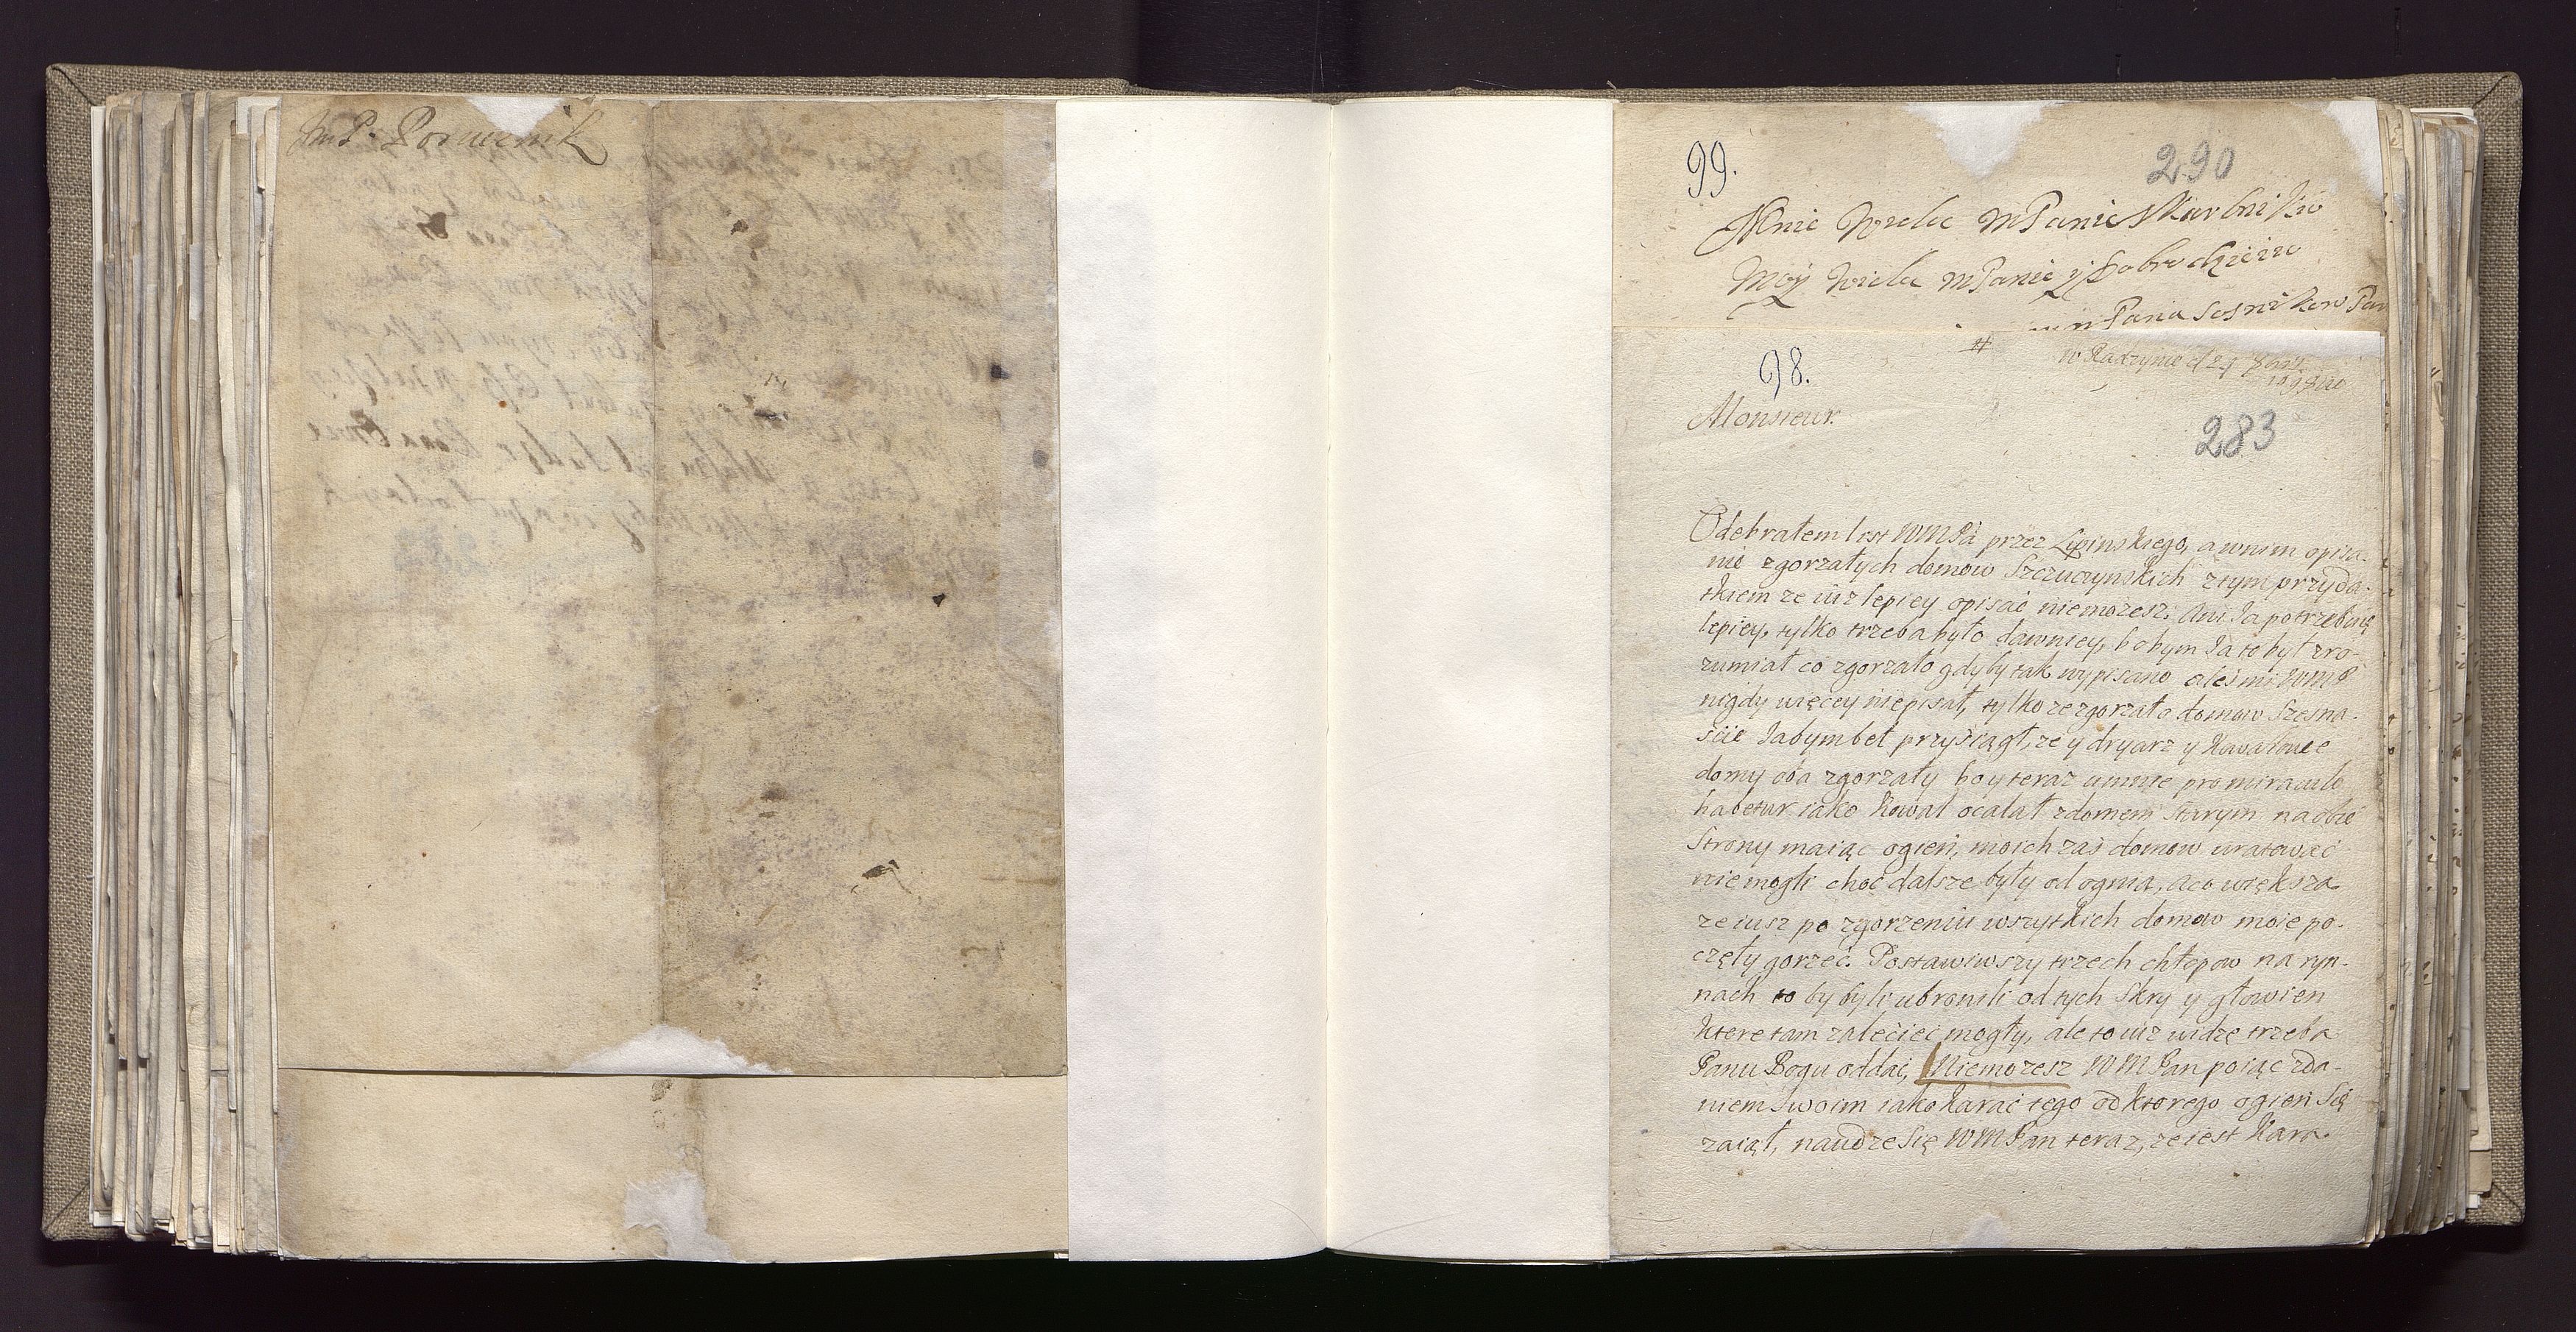 JmP. Porucznik
99.
290
Mnie Wielce MPanie Skarbniku
Moy Wielce MPanie y Dobrodzieiu
Pana
#
w Radzyniu d 29
98.
Monsieur.
283
Odebrałem list WMPa przez Lipinskiego, a wnim opisa-
nie zgorzałych domow Szczuczynskich ztym przyda-
tkiem ze iuz lepiey opisać niemozesz. Ani Ja potrzebuię
lepiey, tylko trzeba było dawniey, bobym Ja to był zro-
zumiał co zgorzało gdyby tak wypisano aleś mi WMP
nigdy więcey niepisał, tylko ze zgorzało domow Szesna-
ście Jabym beł przysiągł, ze y drygarz y Kowalowe
domy oba zgorzały bo y teraz umnie pro miraculo
habetur iako Kowal ocalał zdomem starym na obie
Strony maiąc ogień, moich zaś domow uratować
nie mogli choć dalsze były od ognia, a co większa
ze iusz po zgorzeniu wszytkich domow moie po-
częły gorzeć. Postawiwszy trzech chłopow na ryn-
nach to by byli ubronili od tych Skry y głowien
Ktore tam zalecieć mogły, ale to iuz widzę trzeba
Panu Bogu oddać, Niemozesz WMPan poiąc zda-
niem swoim iako karać tego od ktorego ogień Się
zaiął, naudze Się WMPan teraz, ze iest Kara